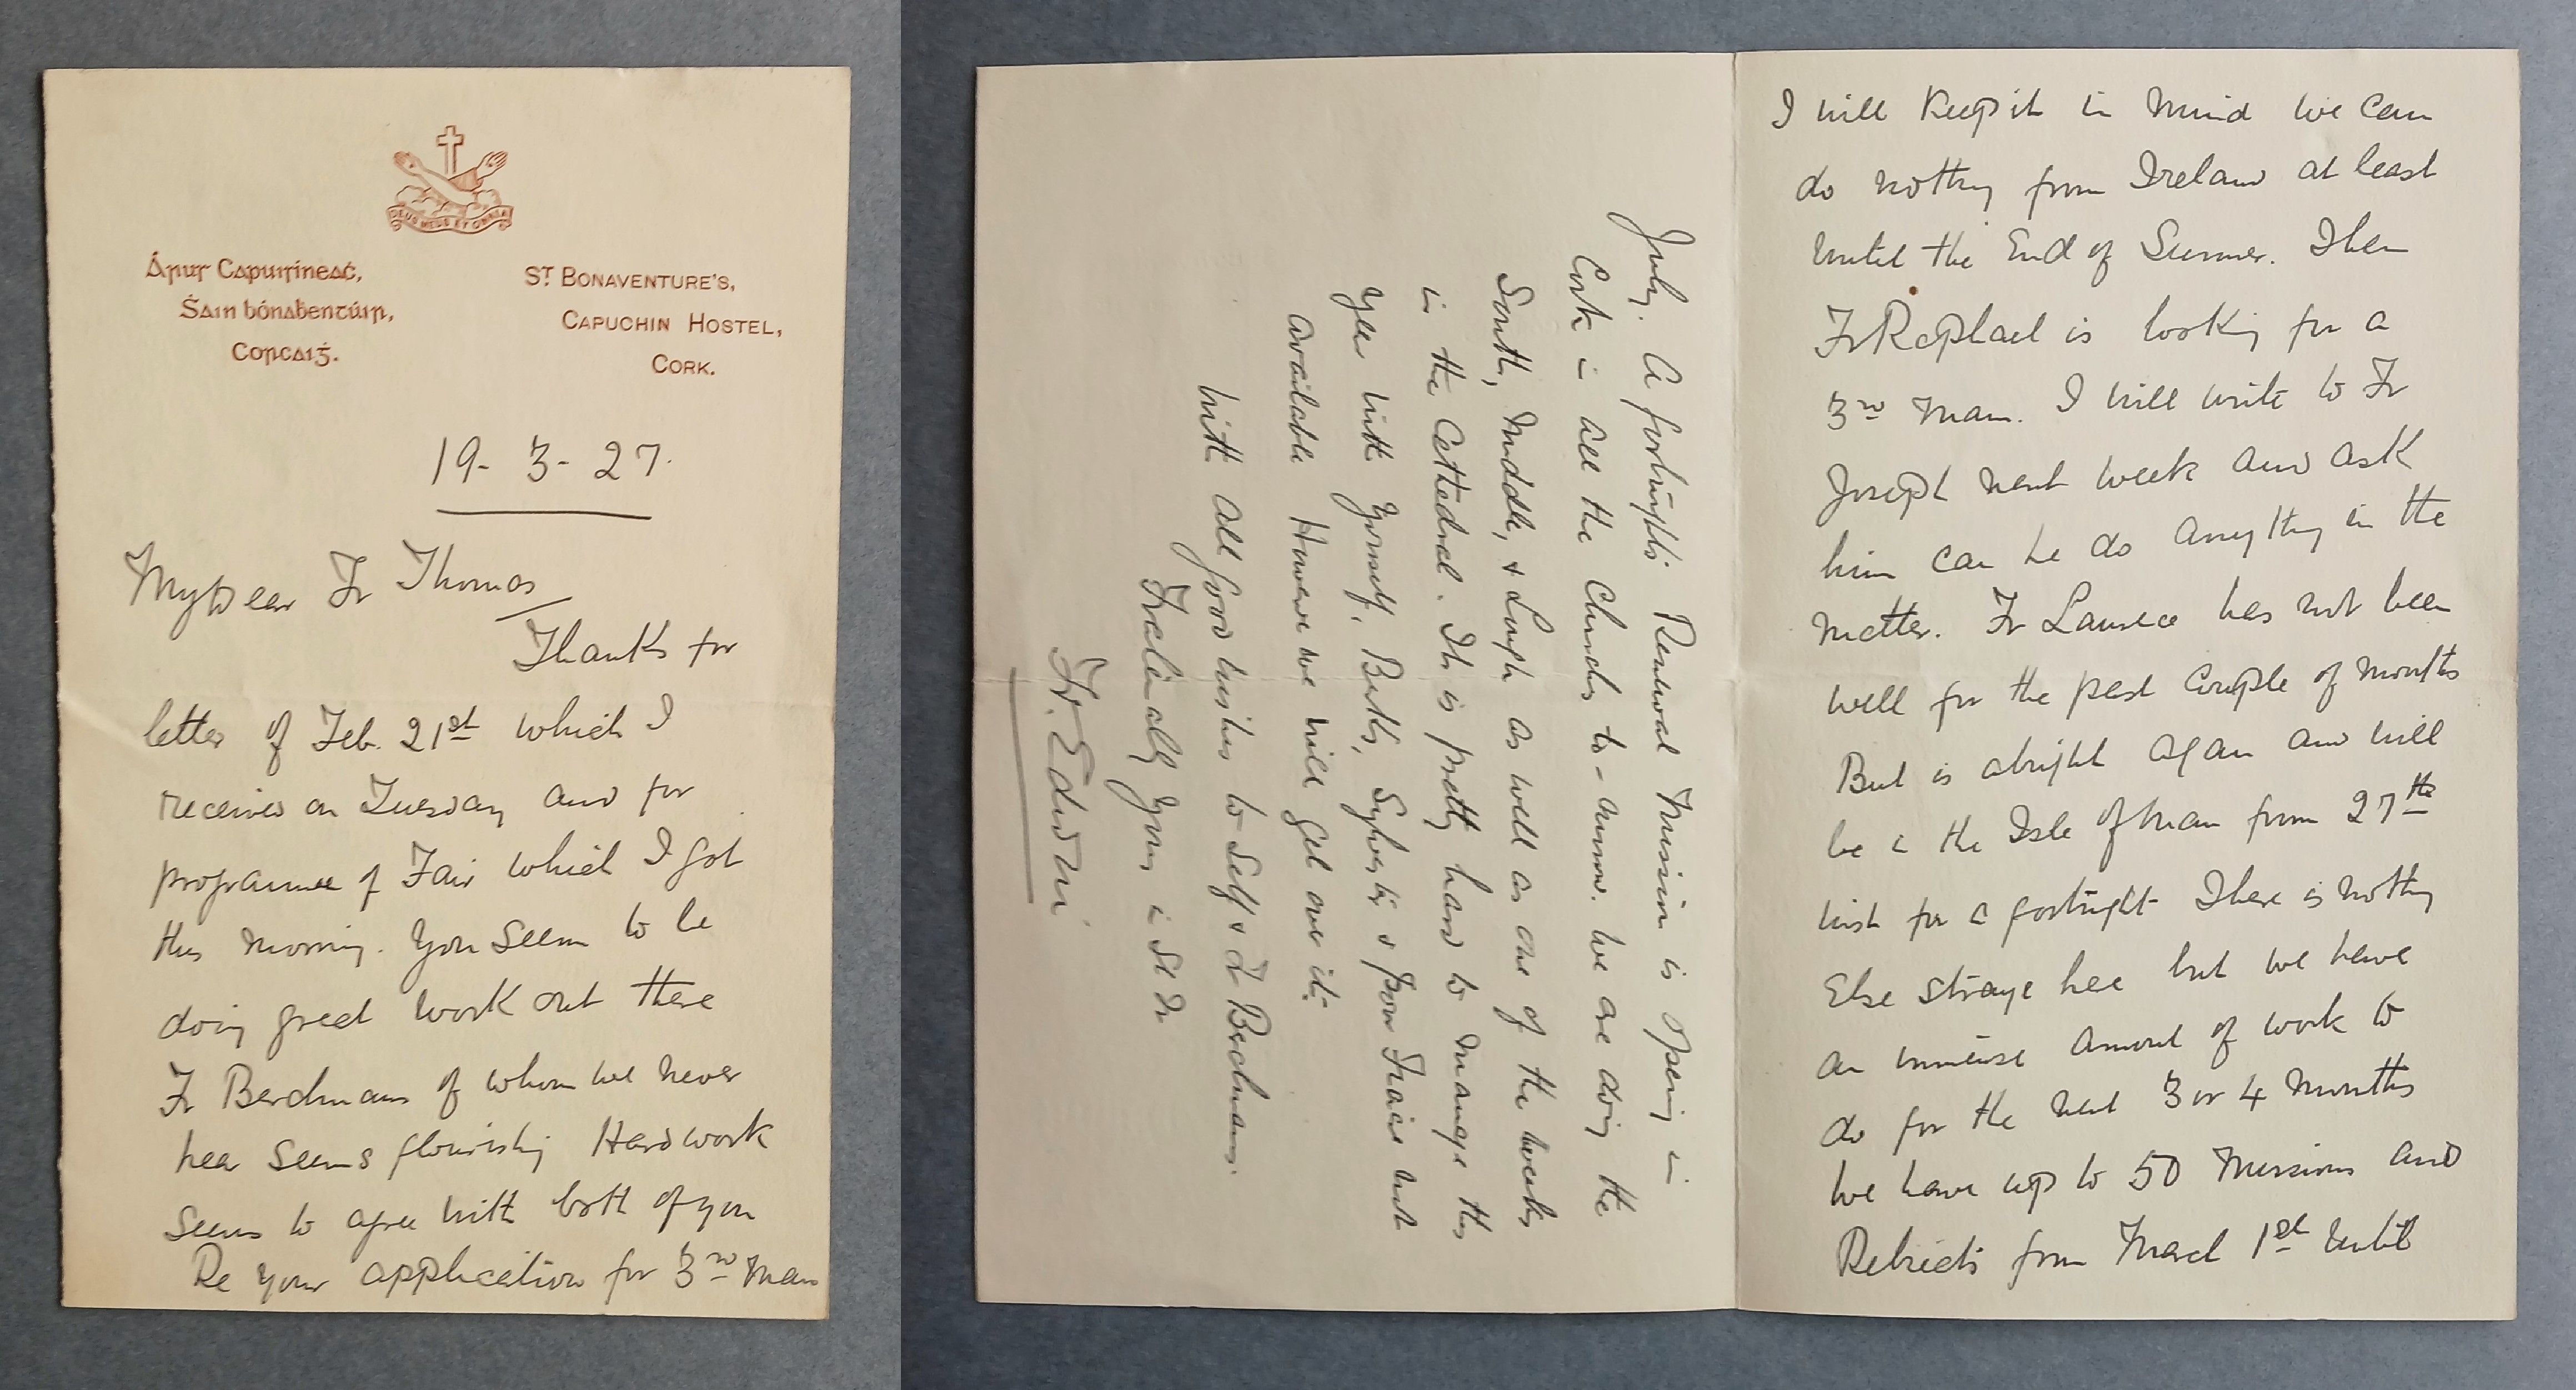 DEUS MEUS ET OMNIA
Áruſ Capuiṫíneaċ,
Ṡain bónabentúir,
Corcaiġ.
ST BONAVENTURE'S,
CAPUCHIN HOSTEL,
CORK.
19-3-27.
My Dear Fr Thomas/
Thanks for
letter of Feb. 21st which I
received on Tuesday and for
programme of Fair which I got
this morning. You seem to be
doing great work out there
Fr Berchmans of whom we never
hear seems flourishing Hard work
seems to agree with both of you
Re your application for 3rd Man
I will keep it in mind we can
do nothing from Ireland at least
until the End of Summer. Then
Fr Raphael is looking for a
3rd Man. I will write to Fr
Joseph next week and ask
him can he do anything in the
matter. Fr Laurence has not been
well for the past couple of months
But is alright again and will
be in the Isle of Man from 27th
inst for a fortnight There is nothing
Else strange here but we have
an immense amount of work to
do for the next 3 or 4 months
We have up to 50 Missions and
Retreats from March 1st until
July. A fortnight's Renewal Mission is opening in
Cork in all the Churches to-morrow. We are doing the
South, Middle, & Lough as well as one of the weeks
in the Cathedral. It is pretty hard to manage this
year with yourself, Berks, Sylvester & poor not
available However we will get over it.
With all good wishes to Self & Fr Berchmans.
Fraternally yours in St Fr
Fr. Edwin